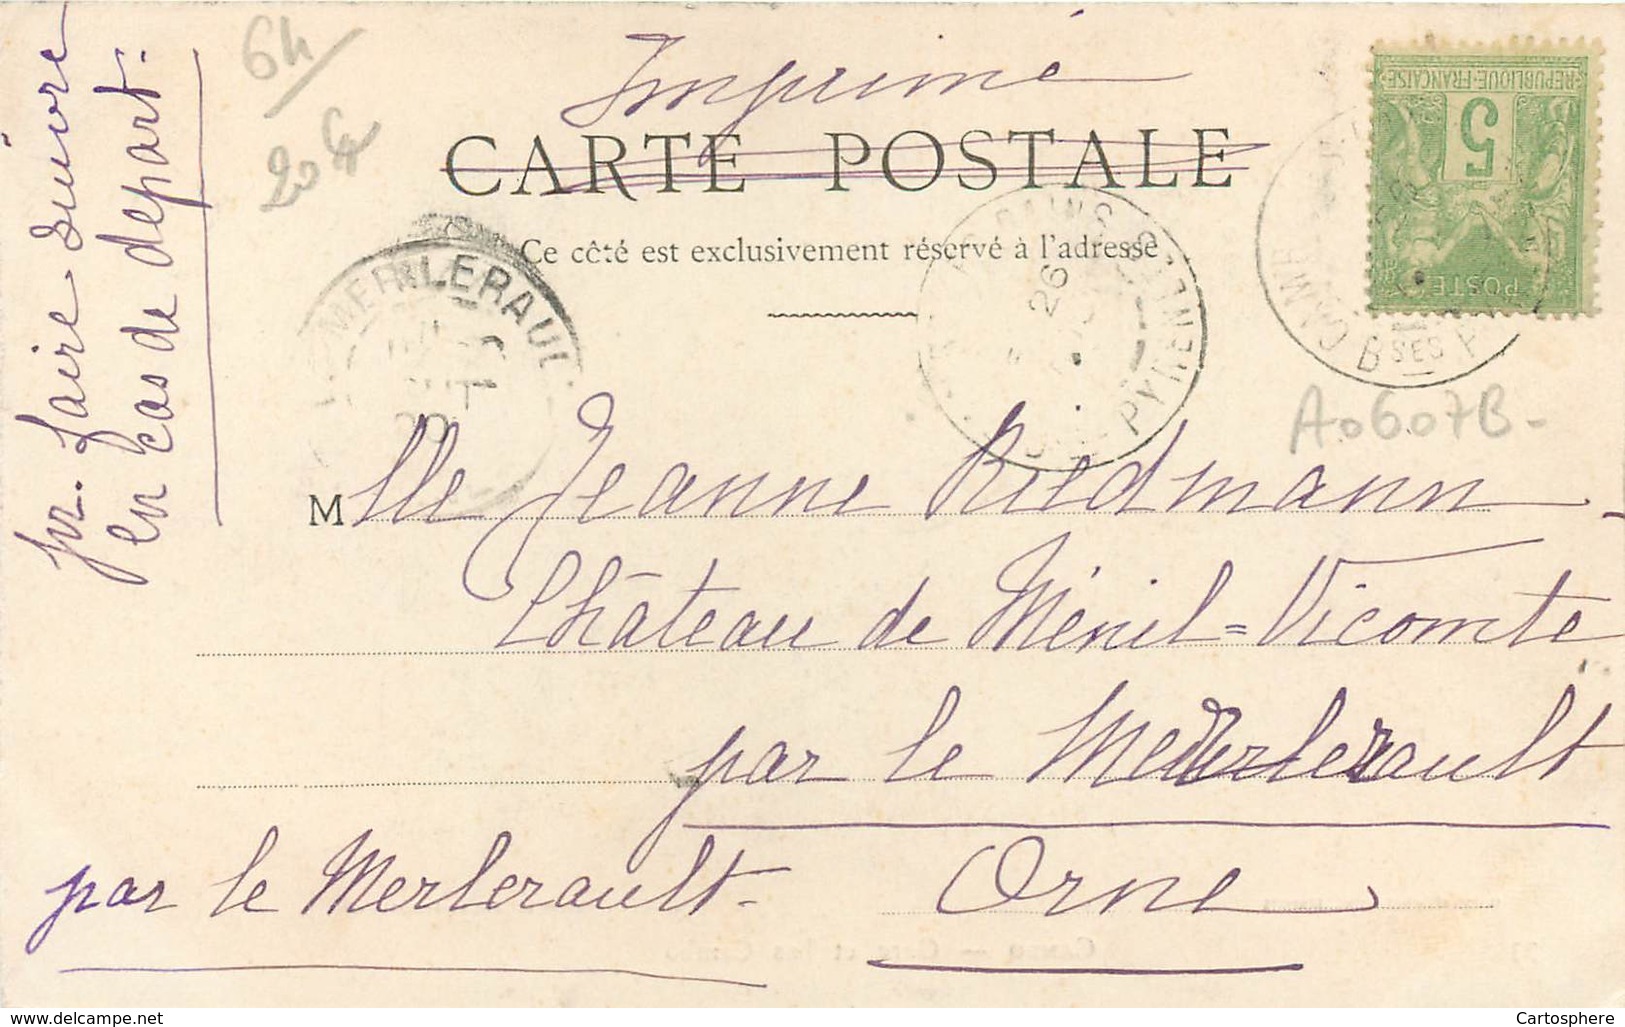 pr. faire suivre
en cas de depart.
64
20
Imprimé
CARTE POSTALE
Ce côté est exclusivement réservé à l'adresse
REPUBLIQUE FRANCAISE
5
POSTE
MERLERAUL
26
BAINS
PYRENEES
CAMB
Bses P
A0607B-
Mlle Jeanne Riedmann
Château de Ménil=Vicomte
par le Merlerault
par le Merlerault-
Orne
delcampe.net
Cartosphere